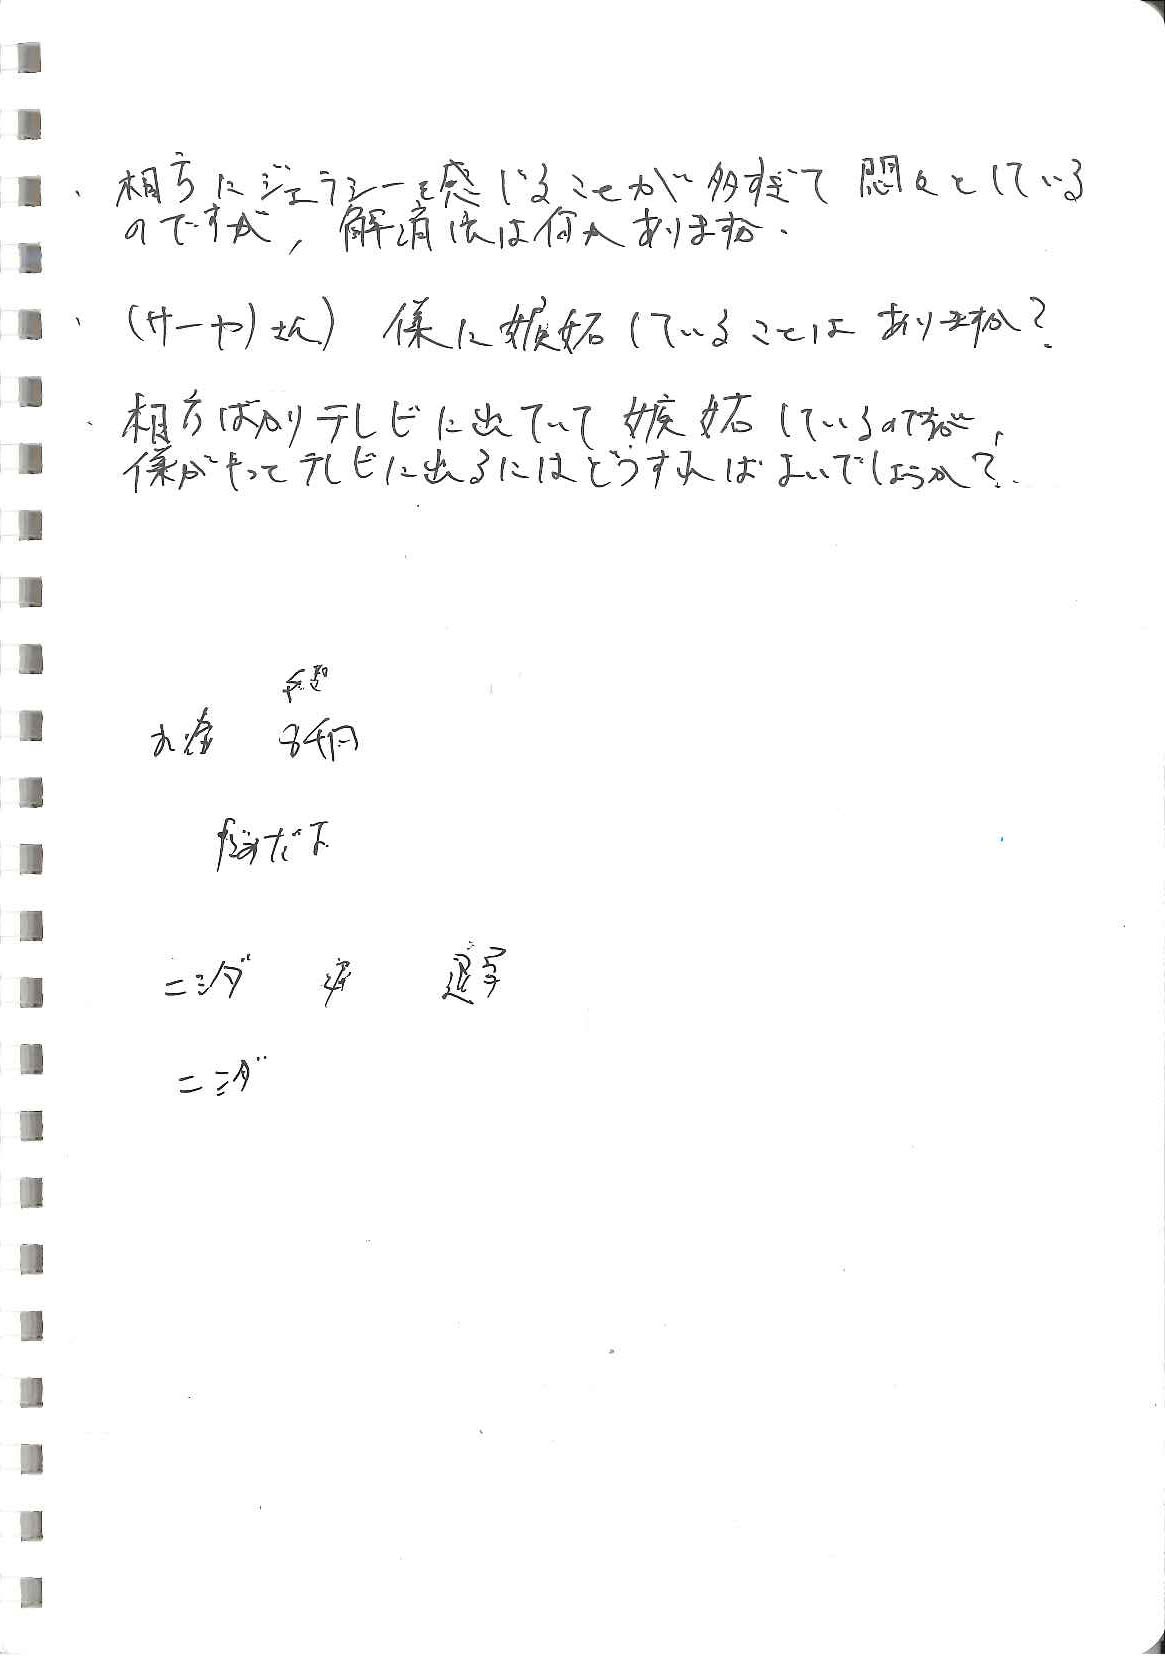 ・相方にジェラシーを感じることが多すぎて 悶々としている
のですが、解消法は何かありますか.
・(サーヤ)さん) 僕に嫉妬していることはありますか?
・相方ばかりテレビに出ていて嫉妬しているのですが、
僕がやってテレビに出るにはどうすればよいでしょうか?
8千円
ニシダ 退学
ニシダ